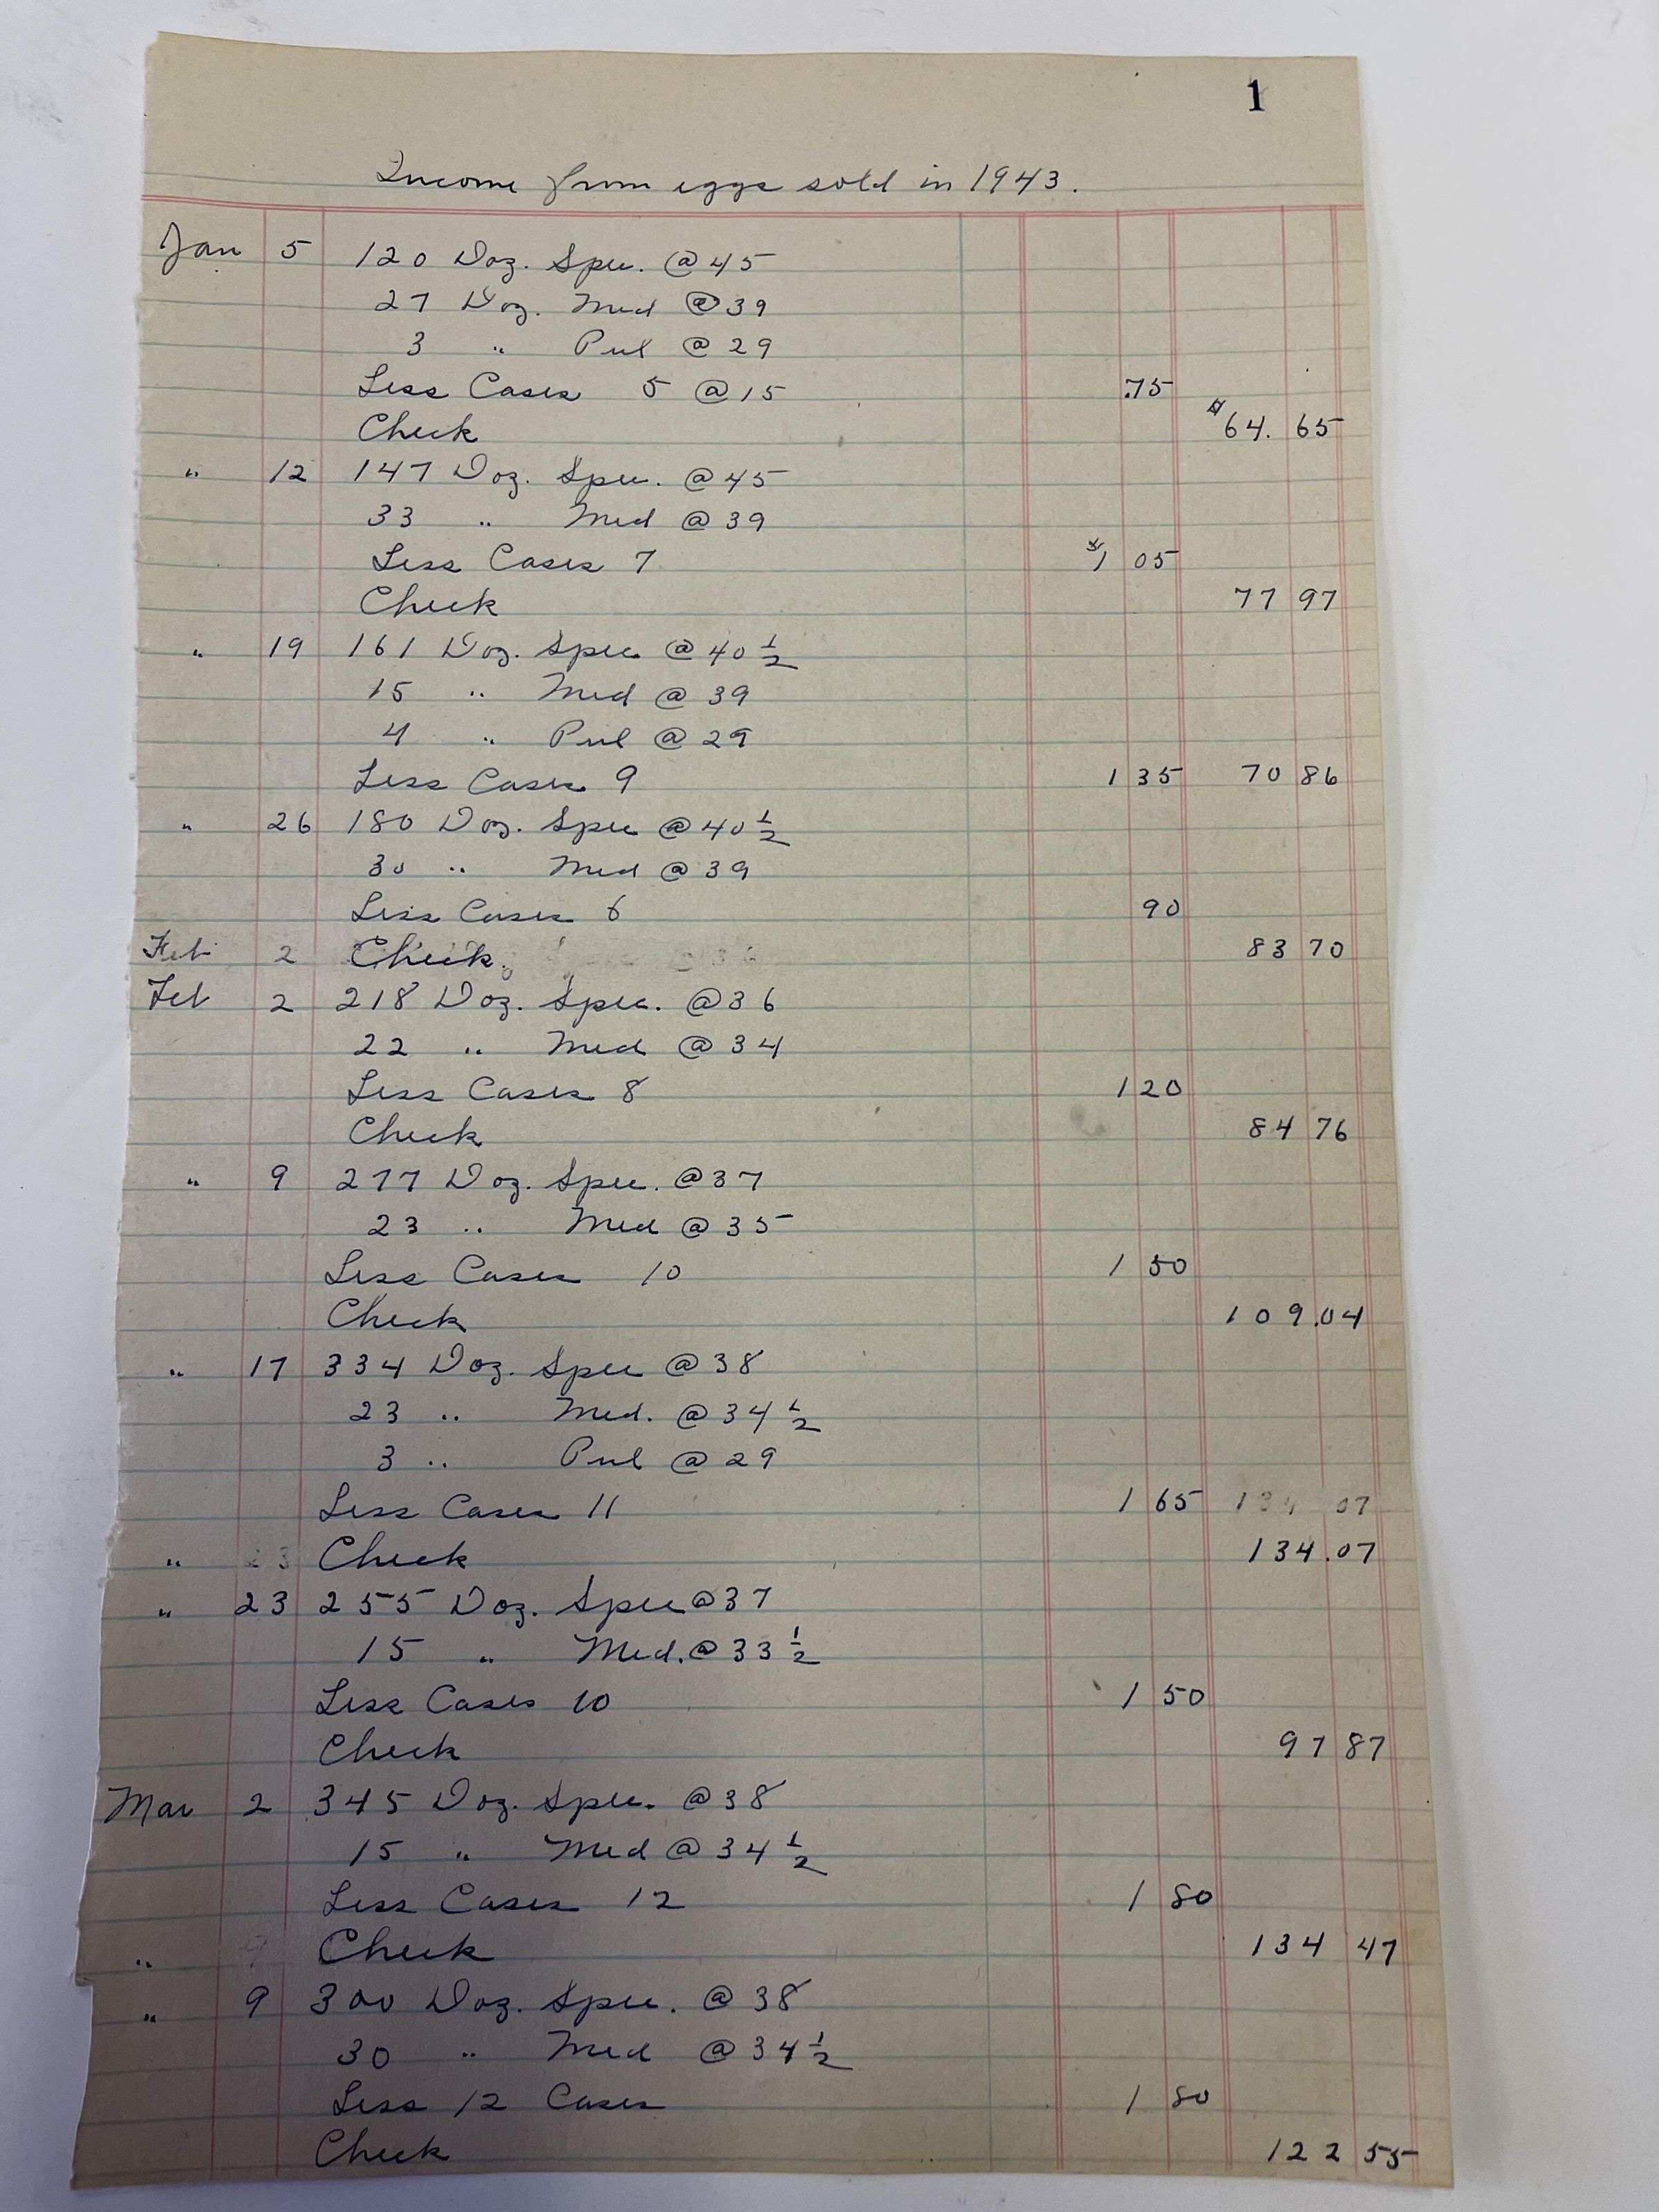 1
Income from eggs sold in 1943.
Jan 5 120 Doz. Spec. @ 45
27 Doz. Med @ 39
3 " Pul @ 29
Less Cases 5 @ 15 .75
Check $64.65
" 12 147 Doz. Spec. @ 45
33 " Med @ 39
Less Cases 7 $1 05
Check 77 97
" 19 161 Doz. Spec @ 40 1/2
15 " Med @ 39
4 " Pul @ 29
Less Cases 9 1 35 70 86
" 26 180 Doz. Spec @ 40 1/2
30 " Med @ 39
Less Cases 6 90
Feb 2 Check. 83 70
Feb 2 218 Doz. Spec. @ 36
22 " Med @ 34
Less Cases 8 1 20
Check 84 76
" 9 277 Doz. Spec. @ 37
23 " Med @ 35
Less Cases 10 1 50
Check 109.04
" 17 334 Doz. Spec @ 38
23 " Med. @ 34 1/2
3 " Pul @ 29
Less Cases 11 1 65 134 07
" 23 Check 134.07
" 23 255 Doz. Spec @ 37
15 " Med. @ 33 1/2
Less Cases 10 1 50
Check 97 87
Mar 2 345 Doz. Spec. @ 38
15 " Med @ 34 1/2
Less Cases 12 1 80
" 9 Check 134 47
" 9 300 Doz. Spec. @ 38
30 " Med @ 34 1/2
Less 12 Cases 1 80
Check 122 55